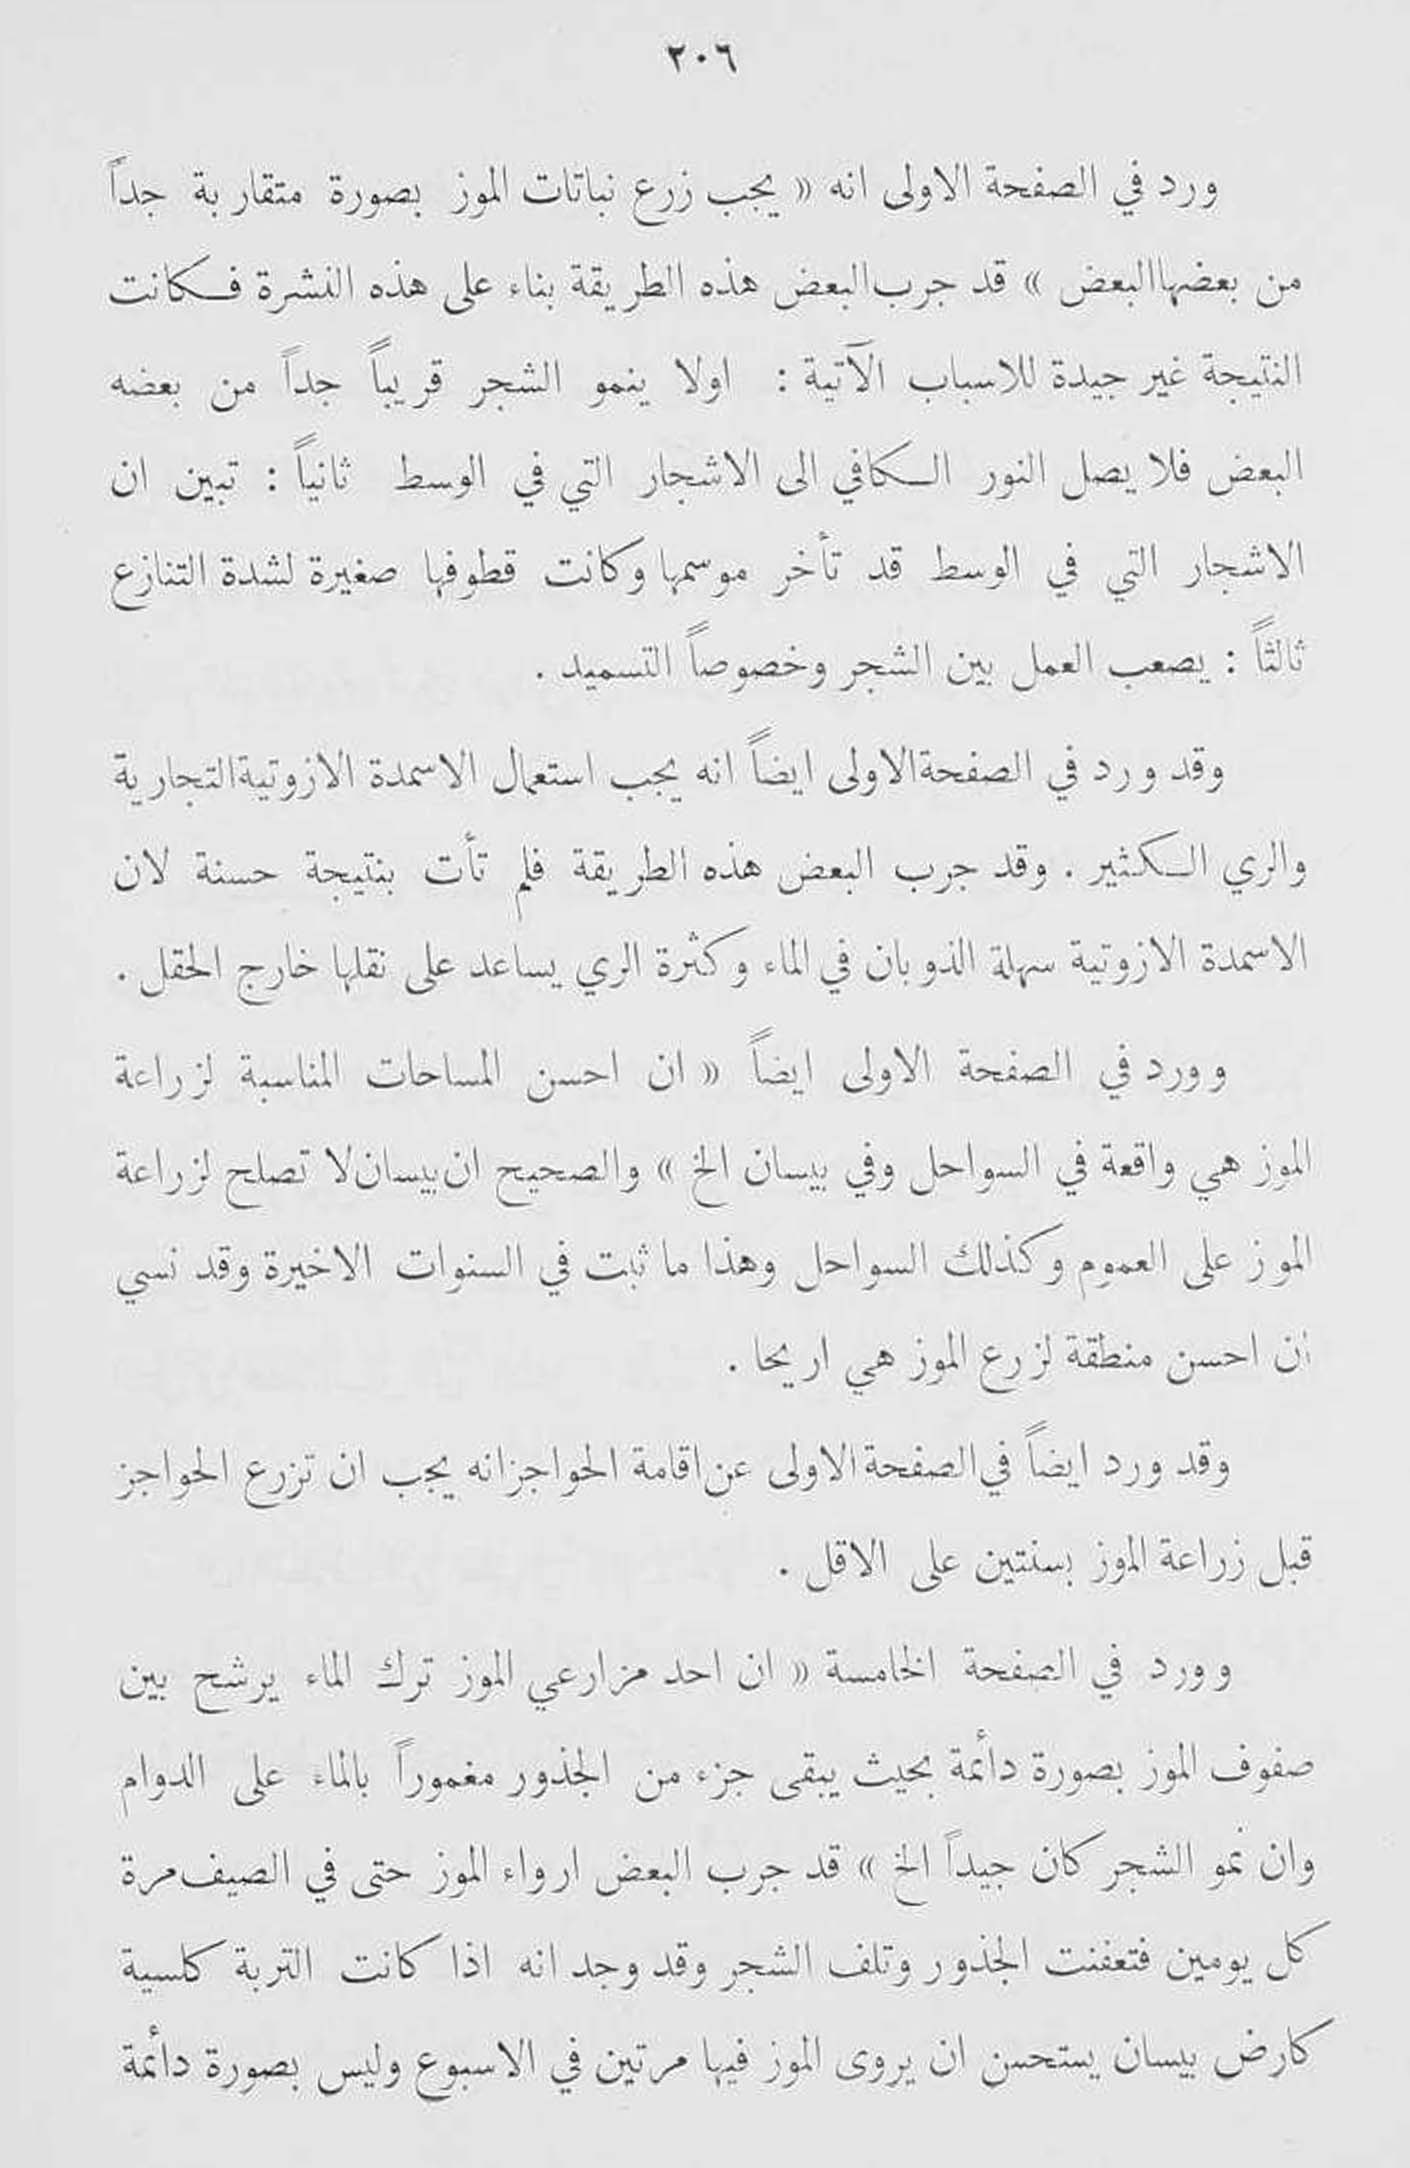 ٢٠٦
ورد في الصفحة الاولى انه « يجب زرع نباتات الموز بصورة متقاربة جداً
من بعضها البعض » قد جرب البعض هذه الطريقة بناء على هذه النشرة فكانت
النتيجة غير جيدة للاسباب الآتية : اولا ينمو الشجر قريباً جداً من بعضه
البعض فلا يصل النور الكافي الى الاشجار التي في الوسط ثانياً : تبين ان
الاشجار التي في الوسط قد تأخر موسمها وكانت قطوفها صغيرة لشدة التنازع
ثالثاً : يصعب العمل بين الشجر وخصوصاً التسميد .
وقد ورد في الصفحة الاولى ايضاً انه يجب استعمال الاسمدة الازوتية التجارية
والري الكثير . وقد جرب البعض هذه الطريقة فلم تأت بنتيجة حسنة لان
الاسمدة الازوتية سهلة الذوبان في الماء وكثرة الري يساعد على نقلها خارج الحقل .
وورد في الصفحة الاولى ايضاً « ان احسن المساحات المناسبة لزراعة
الموز هي واقعة في السواحل وفي بيسان الخ » والصحيح ان بيسان لا تصلح لزراعة
الموز على العموم وكذلك السواحل وهذا ما ثبت في السنوات الاخيرة وقد نسي
ان احسن منطقة لزرع الموز هي اريحا .
وقد ورد ايضاً في الصفحة الاولى عن اقامة الحواجز انه يجب ان تزرع الحواجز
قبل زراعة الموز بسنتين على الاقل .
وورد في الصفحة الخامسة « ان احد مزارعي الموز ترك الماء يرشح بين
صفوف الموز بصورة دائمة بحيث يبقى جزء من الجذور مغموراً بالماء على الدوام
وان نمو الشجر كان جيداً الخ » قد جرب البعض ارواء الموز حتى في الصيف مرة
كل يومين فتعفنت الجذور وتلف الشجر وقد وجد انه اذا كانت التربة كلسية
كارض بيسان يستحسن ان يروى الموز فيها مرتين في الاسبوع وليس بصورة دائمة